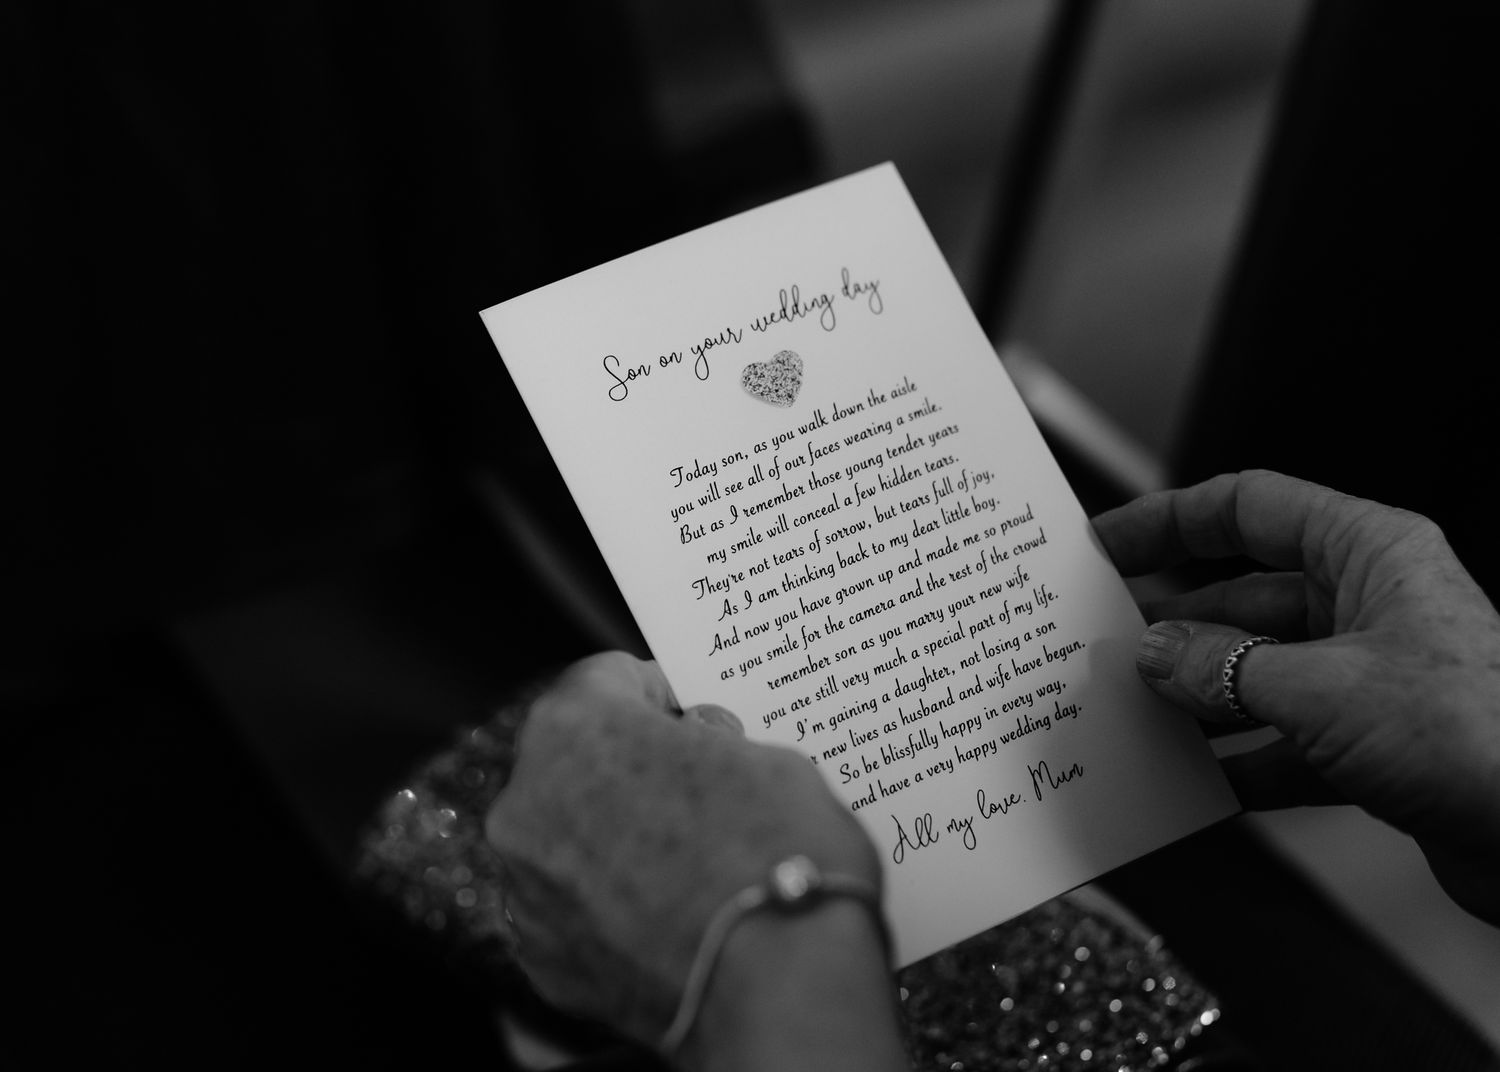 Son on your wedding day
Today son, as you walk down the aisle
you will see all of our faces wearing a smile.
But as I remember those young tender years
my smile will conceal a few hidden tears.
They're not tears of sorrow, but tears full of joy,
As I am thinking back to my dear little boy.
And now you have grown up and made me so proud
as you smile for the camera and the rest of the crowd
remember son as you marry your new wife
you are still very much a special part of my life.
I'm gaining a daughter, not losing a son
new lives as husband and wife have begun.
So be blissfully happy in every way,
and have a very happy wedding day.
All my love. Mum